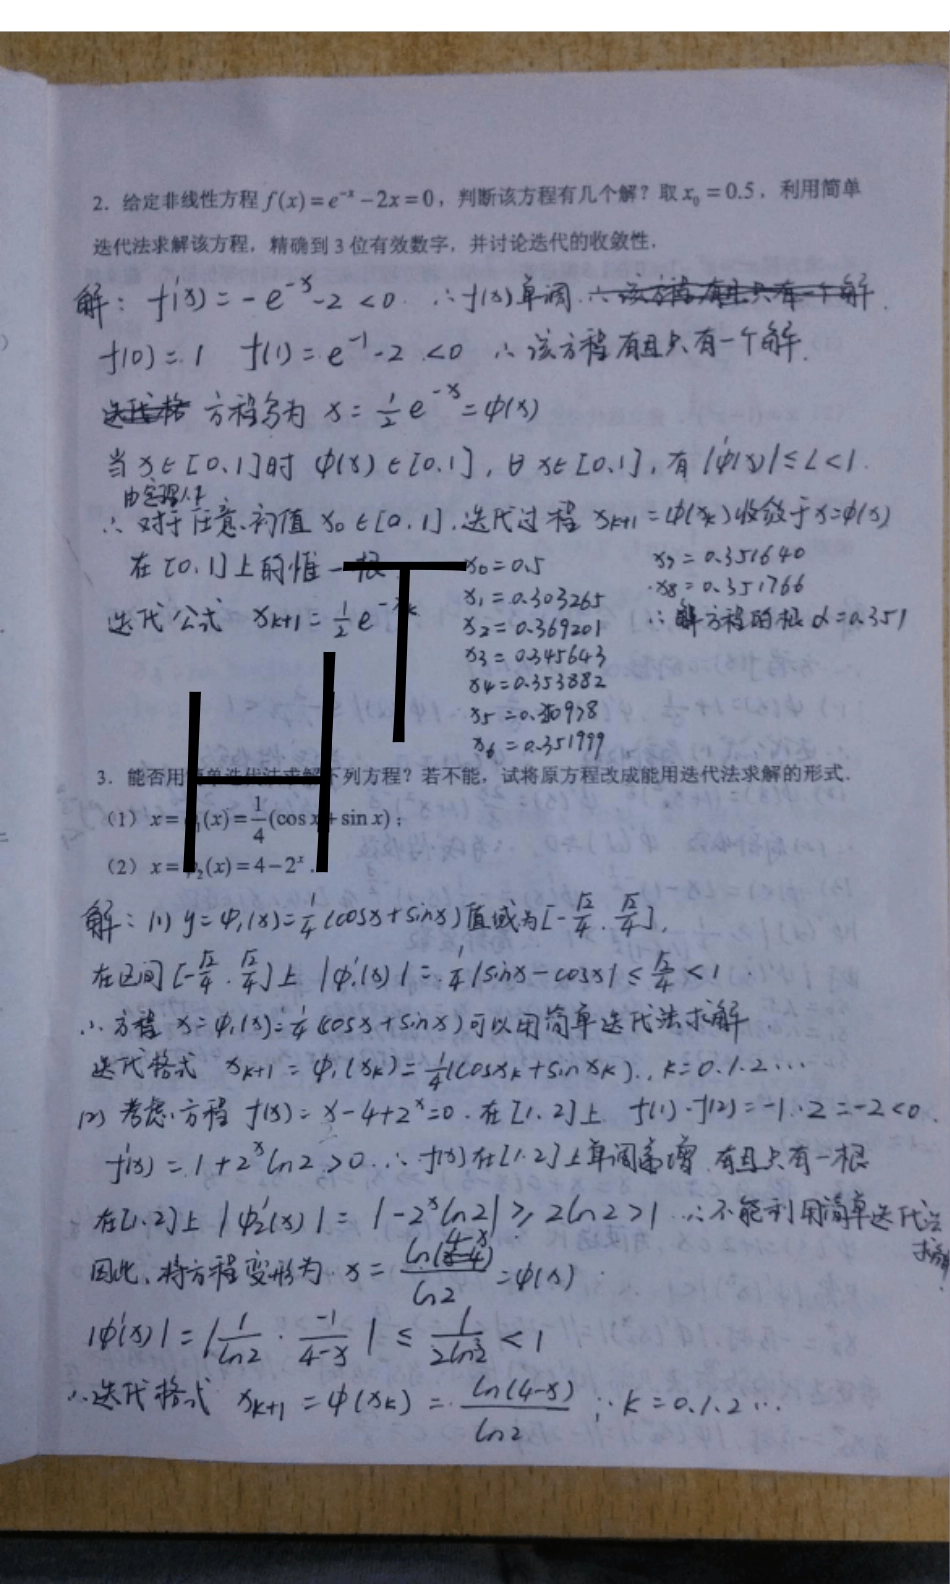 2. 给定非线性方程 f(x)=e^{-x}-2x=0，判断该方程有几个解？取 x_0=0.5，利用简单
迭代法求解该方程，精确到 3 位有效数字，并讨论迭代的收敛性.
解: f'(x)=-e^{-x}-2<0 ∴f(x)单调 ∴该方程有且只有一个解.
f(0)=1 f(1)=e^{-1}-2<0 ∴该方程有且只有一个解.
迭代格 方程写为 x=\frac{1}{2}e^{-x}=φ(x)
当x∈[0.1]时 φ(x)∈[0.1], ∀x∈[0.1], 有|φ'(x)|≤L<1.
由定理1.1
∴对于任意初值x_0∈[0.1],迭代过程 x_{k+1}=φ(x_k)收敛于x=φ(x)
在[0.1]上的惟一根.
迭代公式 x_{k+1}=\frac{1}{2}e^{-x_k}
x_0=0.5
x_1=0.303265
x_2=0.369201
x_3=0.345643
x_4=0.353882
x_5=0.350978
x_6=0.351999
x_7=0.351640
x_8=0.351766
∴解方程的根α=0.351
T
H
3. 能否用简单迭代法求解下列方程？若不能，试将原方程改成能用迭代法求解的形式.
（1）x=φ_1(x)=\frac{1}{4}(cos x+sin x)；
（2）x=φ_2(x)=4-2^x.
解: (1) y=φ_1(x)=\frac{1}{4}(cosx+sinx)值域为[-\frac{√2}{4}.\frac{√2}{4}],
在区间[-\frac{√2}{4}.\frac{√2}{4}]上 |φ_1'(x)|=\frac{1}{4}|sinx-cosx|≤\frac{√2}{4}<1.
∴方程 x=φ_1(x)=\frac{1}{4}(cosx+sinx)可以用简单迭代法求解
迭代格式 x_{k+1}=φ_1(x_k)=\frac{1}{4}(cosx_k+sinx_k)., k=0.1.2...
(2) 考虑方程 f(x)=x-4+2^x=0.在[1.2]上 f(1)·f(2)=-1·2=-2<0.
f'(x)=1+2^xln2>0.∴f(x)在[1.2]上单调递增 有且只有一根
在[1.2]上|φ_2'(x)|=|-2^xln2|≥2ln2>1 ∴不能利用简单迭代法
求解.
因此.将方程变形为 x=\frac{ln(4-x)}{ln2}=φ(x)
|φ'(x)|=|\frac{1}{ln2}·\frac{-1}{4-x}|≤\frac{1}{2ln2}<1
∴迭代格式 x_{k+1}=φ(x_k)=\frac{ln(4-x)}{ln2}, k=0.1.2...